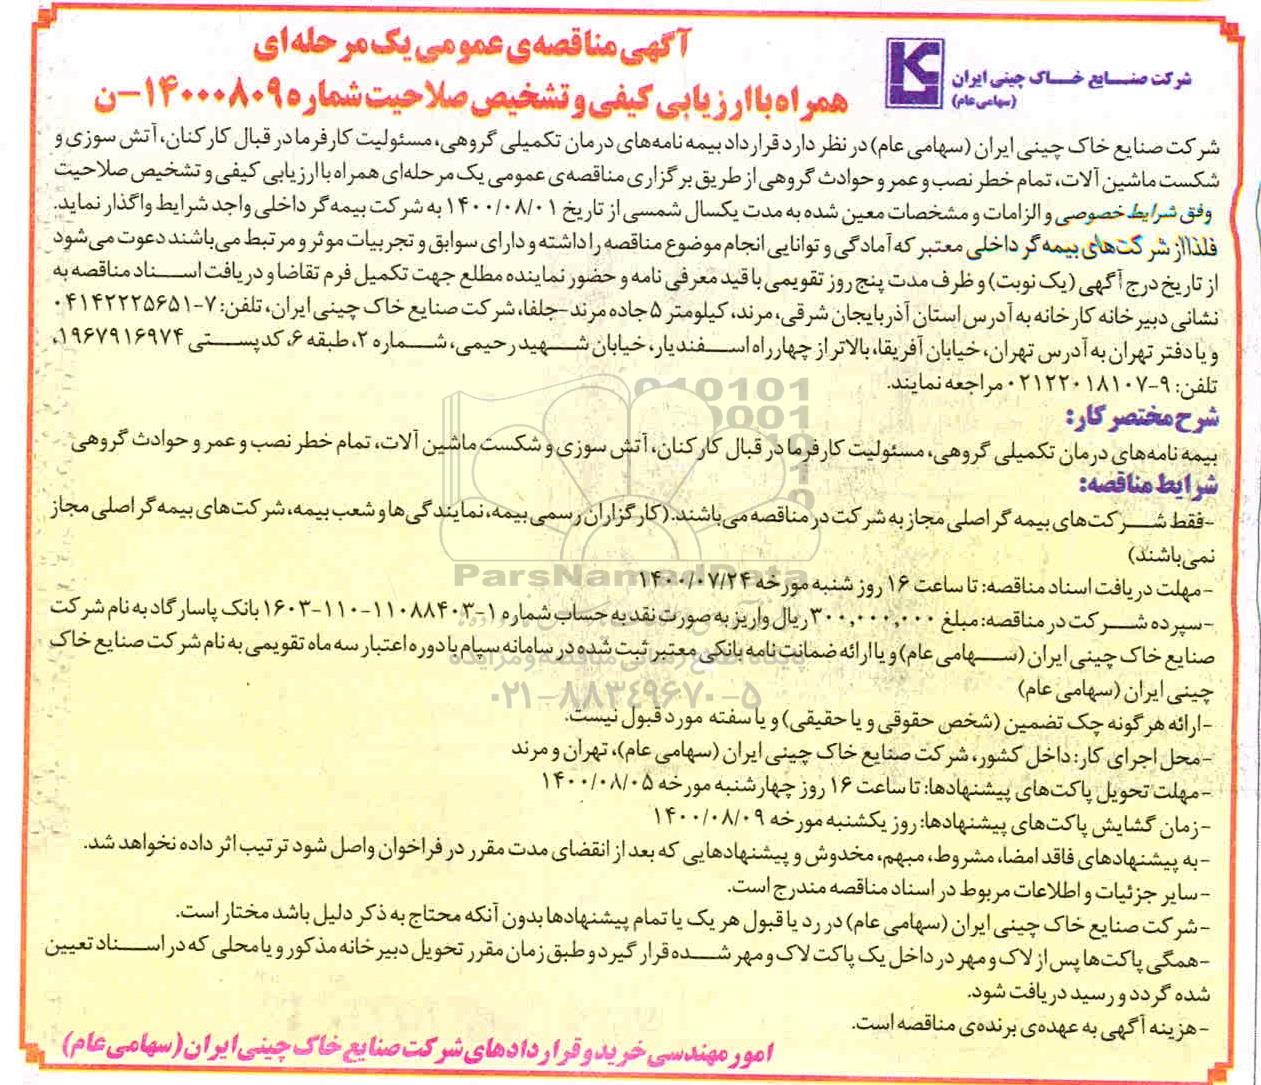 شرکت صنایع خاک چینی ایران
(سهامی عام)
آگهی مناقصه‌ی عمومی یک مرحله‌ای
همراه با ارزیابی کیفی و تشخیص صلاحیت شماره ۱۴۰۰۰۸۰۹-ن
شرکت صنایع خاک چینی ایران (سهامی عام) در نظر دارد قرارداد بیمه نامه‌های درمان تکمیلی گروهی، مسئولیت کارفرما در قبال کارکنان، آتش سوزی و
شکست ماشین آلات، تمام خطر نصب و عمر و حوادث گروهی از طریق برگزاری مناقصه‌ی عمومی یک مرحله‌ای همراه با ارزیابی کیفی و تشخیص صلاحیت
وفق شرایط خصوصی و الزامات و مشخصات معین شده به مدت یکسال شمسی از تاریخ ۱۴۰۰/۰۸/۰۱ به شرکت بیمه گر داخلی واجد شرایط واگذار نماید.
فلذا از شرکت‌های بیمه گر داخلی معتبر که آمادگی و توانایی انجام موضوع مناقصه را داشته و دارای سوابق و تجربیات موثر و مرتبط می‌باشند دعوت می‌شود
از تاریخ درج آگهی (یک نوبت) و ظرف مدت پنج روز تقویمی با قید معرفی نامه و حضور نماینده مطلع جهت تکمیل فرم تقاضا و دریافت اسناد مناقصه به
نشانی دبیرخانه کارخانه به آدرس استان آذربایجان شرقی، مرند، کیلومتر ۵ جاده مرند-جلفا، شرکت صنایع خاک چینی ایران، تلفن: ۷-۰۴۱۴۲۲۲۵۶۵۱
و یا دفتر تهران به آدرس تهران، خیابان آفریقا، بالاتر از چهارراه اسفندیار، خیابان شهید رحیمی، شماره ۲، طبقه ۶، کدپستی ۱۹۶۷۹۱۶۹۷۴،
تلفن: ۹-۰۲۱۲۲۰۱۸۱۰۷ مراجعه نمایند.
شرح مختصر کار:
بیمه نامه‌های درمان تکمیلی گروهی، مسئولیت کارفرما در قبال کارکنان، آتش سوزی و شکست ماشین آلات، تمام خطر نصب و عمر و حوادث گروهی
شرایط مناقصه:
-فقط شرکت‌های بیمه گر اصلی مجاز به شرکت در مناقصه می‌باشند. (کارگزاران رسمی بیمه، نمایندگی‌ها و شعب بیمه، شرکت‌های بیمه گر اصلی مجاز
نمی‌باشند)
-مهلت دریافت اسناد مناقصه: تا ساعت ۱۶ روز شنبه مورخه ۱۴۰۰/۰۷/۲۴
-سپرده شرکت در مناقصه: مبلغ ۳۰۰,۰۰۰,۰۰۰ ریال واریز به صورت نقد به حساب شماره ۱-۱۱۰۸۸۴۰۳-۱۱۰-۱۶۰۳ بانک پاسارگاد به نام شرکت
صنایع خاک چینی ایران (سهامی عام) و یا ارائه ضمانت نامه بانکی معتبر ثبت شده در سامانه سپام با دوره اعتبار سه ماه تقویمی به نام شرکت صنایع خاک
چینی ایران (سهامی عام)
-ارائه هر گونه چک تضمین (شخص حقوقی و یا حقیقی) و یا سفته مورد قبول نیست.
-محل اجرای کار: داخل کشور، شرکت صنایع خاک چینی ایران (سهامی عام)، تهران و مرند
-مهلت تحویل پاکت‌های پیشنهادها: تا ساعت ۱۶ روز چهارشنبه مورخه ۱۴۰۰/۰۸/۰۵
-زمان گشایش پاکت‌های پیشنهادها: روز یکشنبه مورخه ۱۴۰۰/۰۸/۰۹
-به پیشنهادهای فاقد امضا، مشروط، مبهم، مخدوش و پیشنهادهایی که بعد از انقضای مدت مقرر در فراخوان واصل شود ترتیب اثر داده نخواهد شد.
-سایر جزئیات و اطلاعات مربوط در اسناد مناقصه مندرج است.
-شرکت صنایع خاک چینی ایران (سهامی عام) در رد یا قبول هر یک یا تمام پیشنهادها بدون آنکه محتاج به ذکر دلیل باشد مختار است.
-همگی پاکت‌ها پس از لاک و مهر در داخل یک پاکت لاک و مهر شده قرار گیرد و طبق زمان مقرر تحویل دبیرخانه مذکور و یا محلی که در اسناد تعیین
شده گردد و رسید دریافت شود.
-هزینه آگهی به عهده‌ی برنده‌ی مناقصه است.
امور مهندسی خرید و قراردادهای شرکت صنایع خاک چینی ایران (سهامی عام)
ParsNamadData
پایگاه اطلاع رسانی مناقصه و مزایده
۰۲۱-۸۸۳۴۹۶۷۰-۵